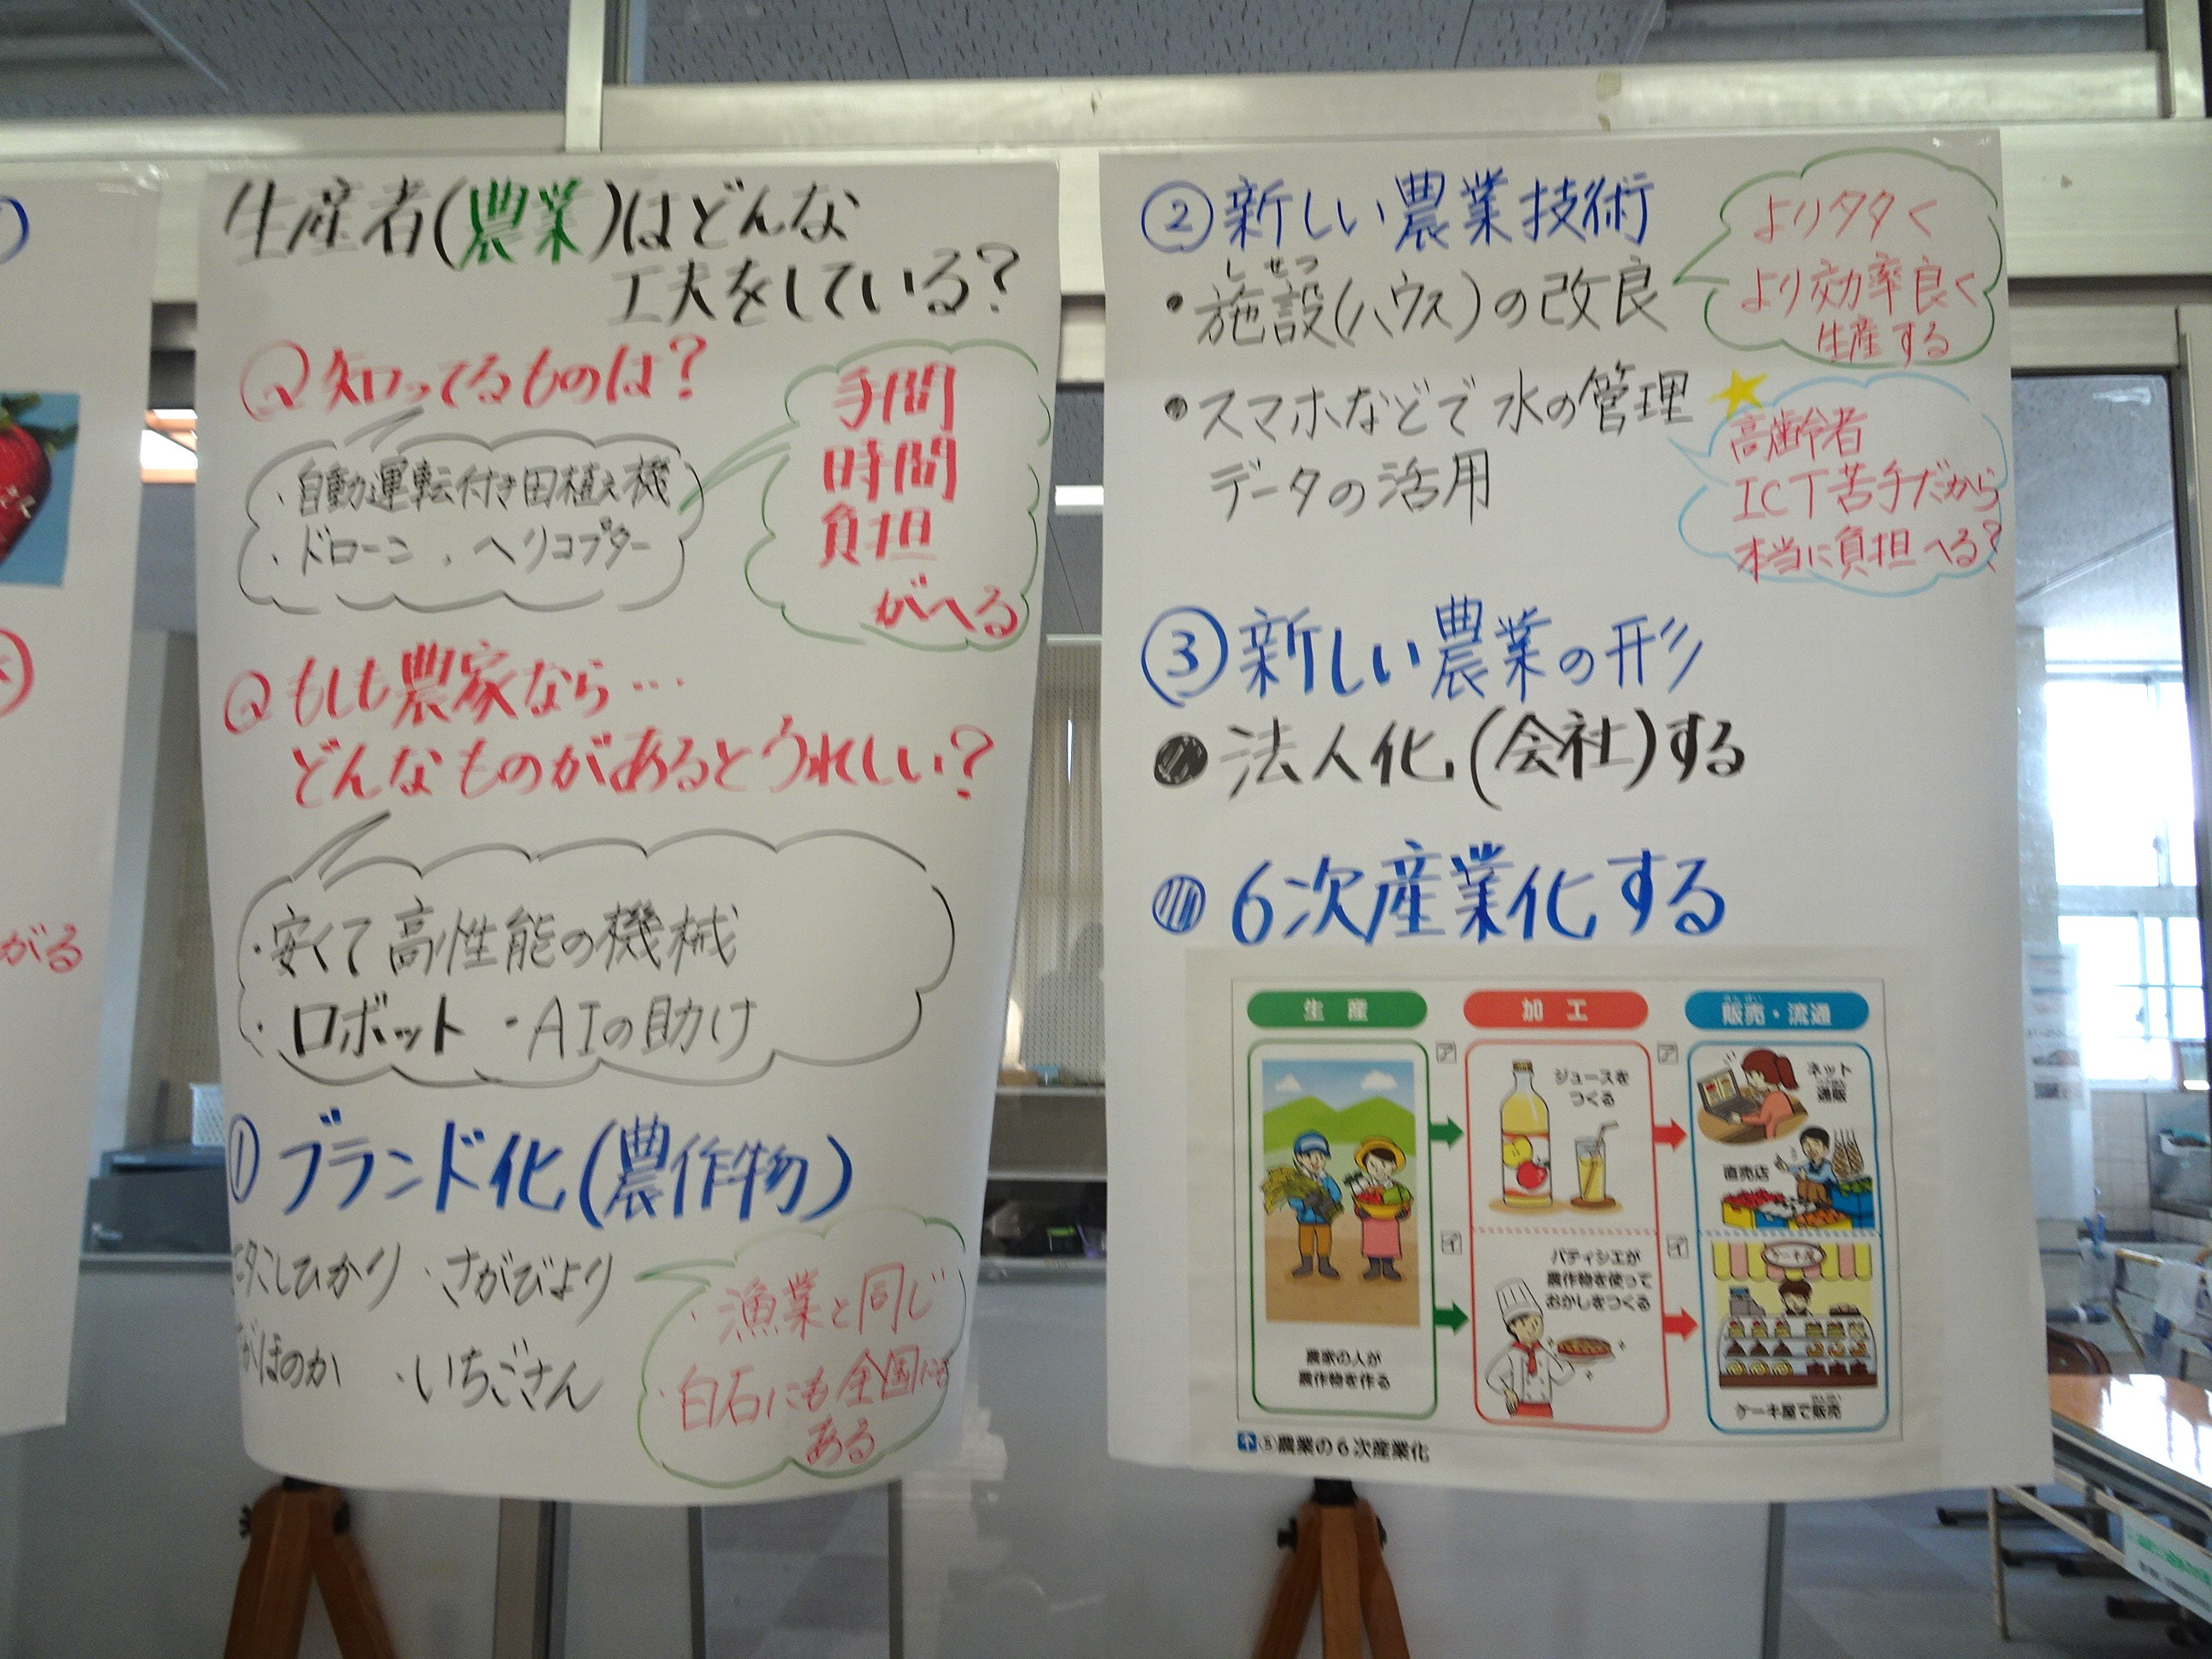 生産者(農業)はどんな
工夫をしている?
Q知ってるものは?
・自動運転付き田植え機
・ドローン ・ヘリコプター
手間
時間
負担
がへる
Qもしも農家なら…
どんなものがあるとうれしい?
・安くて高性能の機械
・ロボット ・AIの助け
①ブランド化(農作物)
こしひかり ・さがびより
がほのか ・いちごさん
・漁業と同じ
・白石にも全国にも
ある
②新しい農業技術
しせつ
・施設(ハウス)の改良
より多く
より効率良く
生産する
・スマホなどで水の管理
データの活用
高齢者
ICT苦手だから
本当に負担へる?
③新しい農業の形
●法人化(会社)する
●6次産業化する
生産
加工
販売・流通
はんばい
ア
ア
ジュースを
つくる
ネット
通販
直売店
イ
イ
パティシエが
農作物を使って
おかしをつくる
ケーキ屋
農家の人が
農作物を作る
ケーキ屋で販売
⑤農業の6次産業化
がる